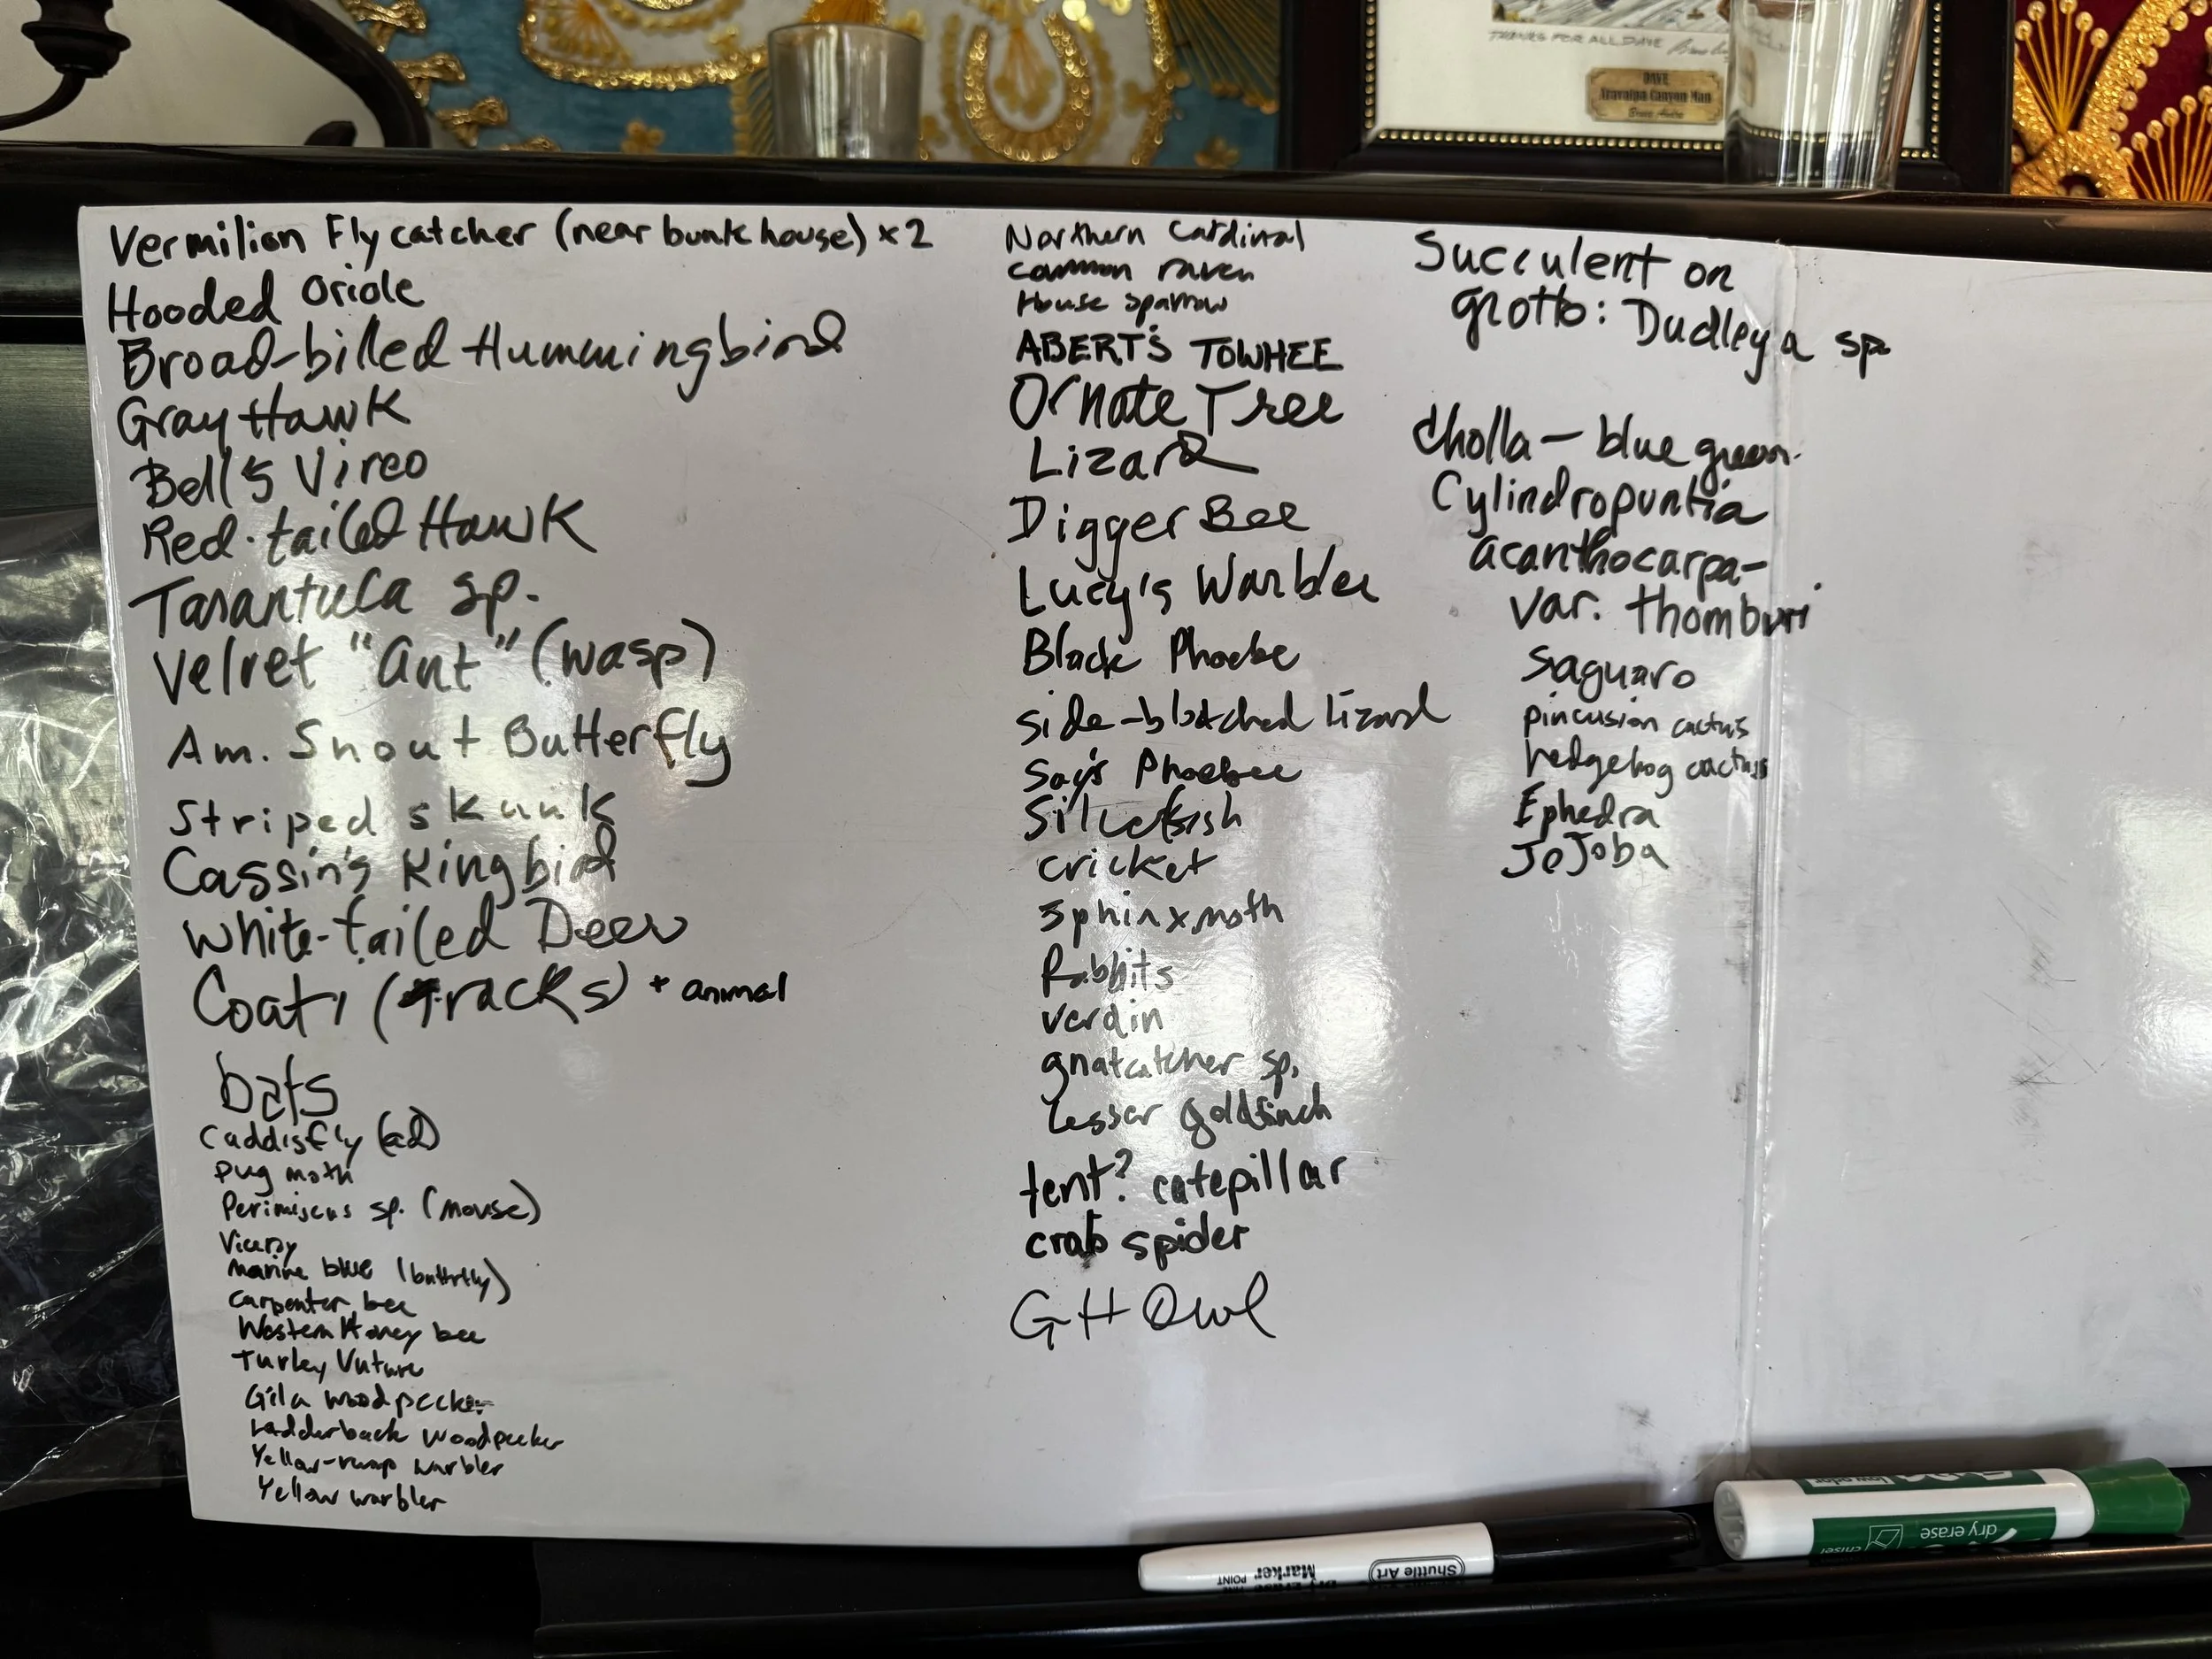 THANKS FOR ALL, DAVE
DAVE
Aravaipa Canyon Man
Vermilion Flycatcher (near bunkhouse) x2
Hooded Oriole
Broad-billed Hummingbird
Gray Hawk
Bell's Vireo
Red-tailed Hawk
Tarantula sp.
Velvet "ant" (wasp)
Am. Snout Butterfly
Striped skunk
Cassin's Kingbird
White-tailed Deer
Coati (tracks) + animal
bats
Caddisfly (ad)
pug moth
Perimiscus sp. (mouse)
Viceroy
Marine blue (buttrfly)
Carpenter bee
Western Honey bee
Turkey Vuture
Gila woodpecker
Ladderback woodpecker
Yellow-rump warbler
Yellow warbler
Northern Cardinal
common raven
House sparrow
ABERT'S TOWHEE
Ornate Tree
Lizard
Digger Bee
Lucy's Warbler
Black Phoebe
side-blotched Lizard
Say's Phoebee
Silverfish
cricket
sphinx moth
Rabbits
verdin
gnatcatcher sp.
Lesser goldfinch
tent? catepillar
crab spider
GH Owl
Succulent on
grotto: Dudleya sp
Cholla - blue green
Cylindropuntia
acanthocarpa-
var. thornburi
saguaro
pincusion cactus
hedgehog cactus
Ephedra
JoJoba
dry erase
chisel
low odor
Shuttle Art
Dry Erase
Marker
FINE POINT